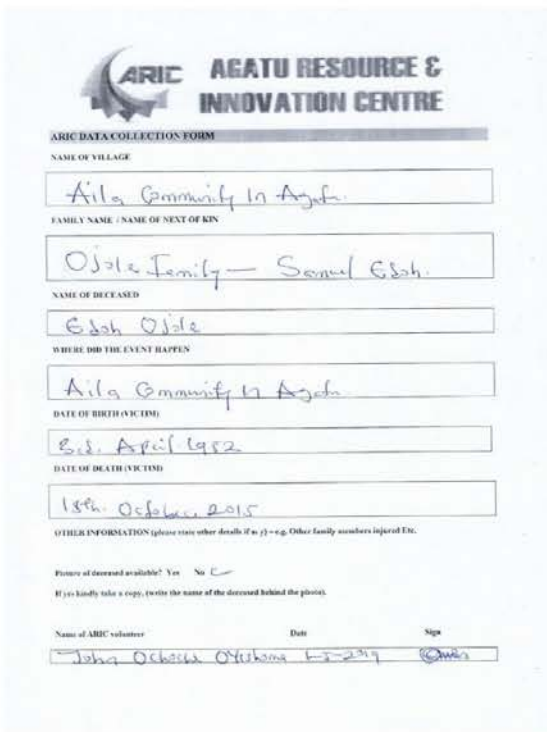 ARIC AGATU RESOURCE &
INNOVATION CENTRE
ARIC DATA COLLECTION FORM
NAME OF VILLAGE
Aila Community In Agatu.
FAMILY NAME / NAME OF NEXT OF KIN
Ojole Family — Samuel Edoh.
NAME OF DECEASED
Edoh Ojole
WHERE DID THE EVENT HAPPEN
Aila Community In Agatu
DATE OF BIRTH (VICTIM)
April 1952
DATE OF DEATH (VICTIM)
18th. October, 2015
OTHER INFORMATION (please state other details if any) – e.g. Other family members injured Etc.
Picture of deceased available? Yes No
If yes kindly take a copy, (write the name of the deceased behind the photo).
Name of ARIC volunteer Date Sign
John